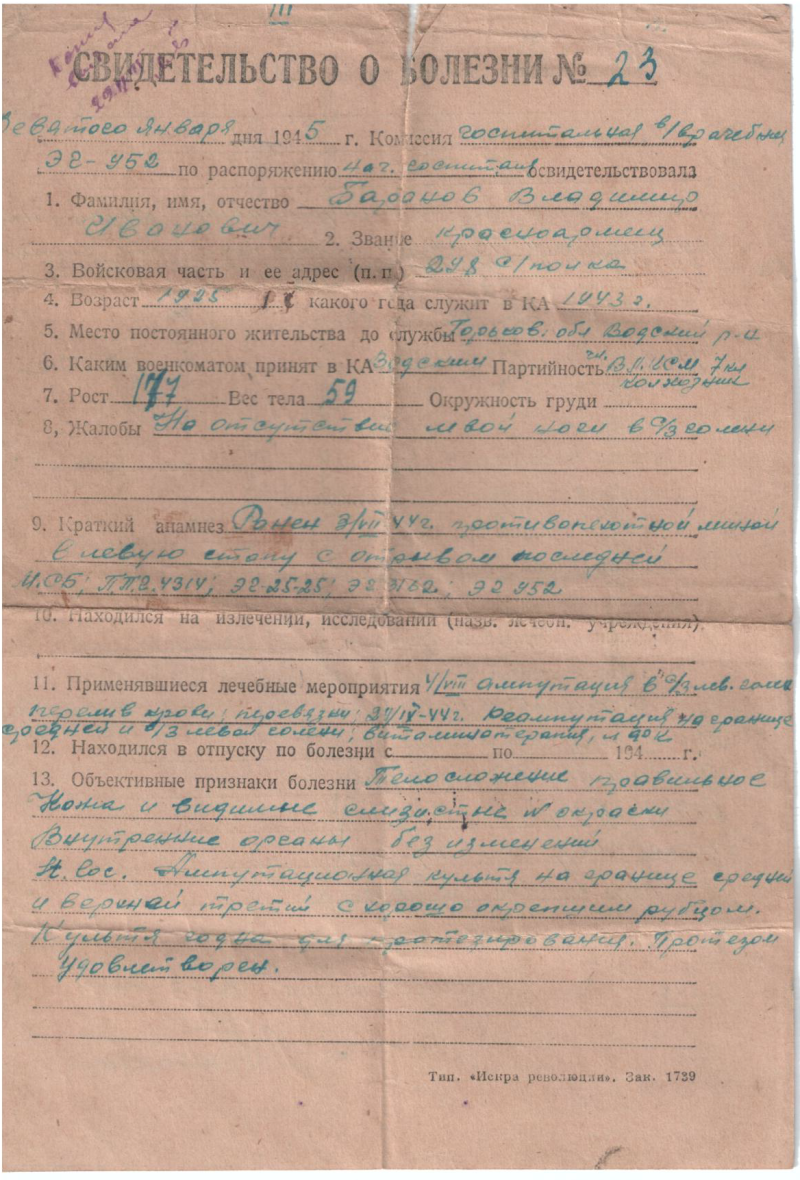 III
СВИДЕТЕЛЬСТВО О БОЛЕЗНИ № 23
Девятого января дня 1945 г. Комиссия госпитальная в/врачебная
ЭГ-952 по распоряжению нач. госпиталя освидетельствовала
1. Фамилия, имя, отчество Баранов Владимир
Иванович 2. Звание красноармеец
3. Войсковая часть и ее адрес (п. п.) 298 с/полка
4. Возраст 1925 какого года служит в КА 1943 г.
5. Место постоянного жительства до службы Горьков. обл Водский р-н
6. Каким военкоматом принят в КА Водским Партийность чл. ВЛКСМ 7 кл
колхозник
7. Рост 177 Вес тела 59 Окружность груди
8, Жалобы На отсутствие левой ноги в с/з голени
9. Краткий анамнез Ранен 3/VII 44 г. противопехотной миной
в левую стопу с отрывом последней
МСБ; ППГ. 4314; ЭГ-25-25; ЭГ ; ЭГ 952
10. Находился на излечении, исследовании (назв. лечебн. учреждения)
11. Применявшиеся лечебные мероприятия 4/VIII ампутация в с/з лев. голе
перелив крови; перевязки; 27/IX-44 г. Реампутация на границе
средней и в/з левой голени; витаминотерапия,
12. Находился в отпуску по болезни с по 194 г.
13. Объективные признаки болезни Телосложение правильное
Кожа и видимые слизистые N окраски
Внутренние органы без изменений
St. loc. Ампутационная культя на границе средней
и верхней трети с хорошо окрепшим рубцом.
Культя годна для протезирования. Протезом
удовлетворен.
Тип. «Искра революции». Зак. 1739